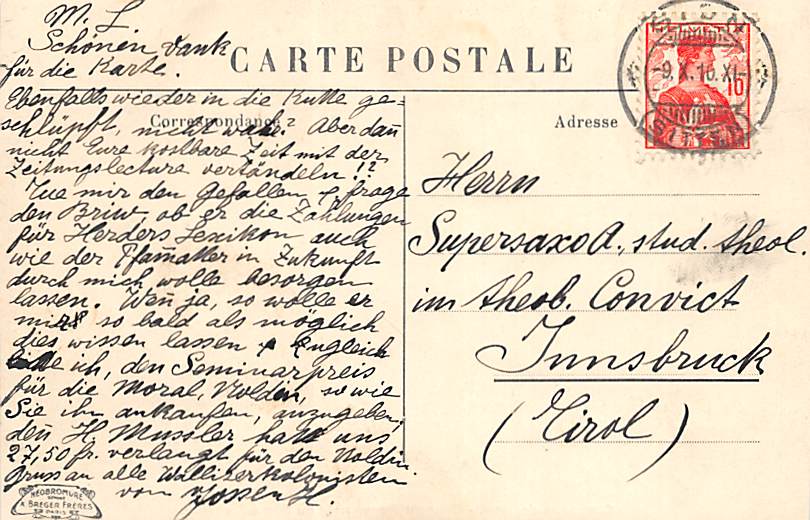 CARTE POSTALE
Correspondance
Adresse
M. L
Schönen Dank
für die Karte.
Ebenfalls wieder in die Kutte ge=
schlüpft, nicht wahr. Aber dañ
nicht Eure kostbare Zeit mit der
Zeitungslecture vertändeln!?
Tue mir den Gefallen & frage
den Briw, ob er die Zahlungen
für Herders Lexikon auch
wie der Pfamatter in Zukunft
durch mich wolle besorgen
lassen. Weñ ja, so wolle er
mir so bald als möglich
dies wissen lassen & Zugleich
bitte ich, den Seminarpreis
für die Moral, Noldin, so wie
Sie ihn ankaufen, anzugeben,
deñ H. Mussler hat uns
27,50 fr. verlangt für den Noldin
Gruss an alle Walliserkolonisten
von Jossen H.
Herrn
Supersaxo A., stud. theol.
im theol. Convict
Innsbruck
(Tirol)
SION
-9.X.10.XI-
SITTEN
10
NEOBROMURE
A. BREGER FRÈRES
PARIS